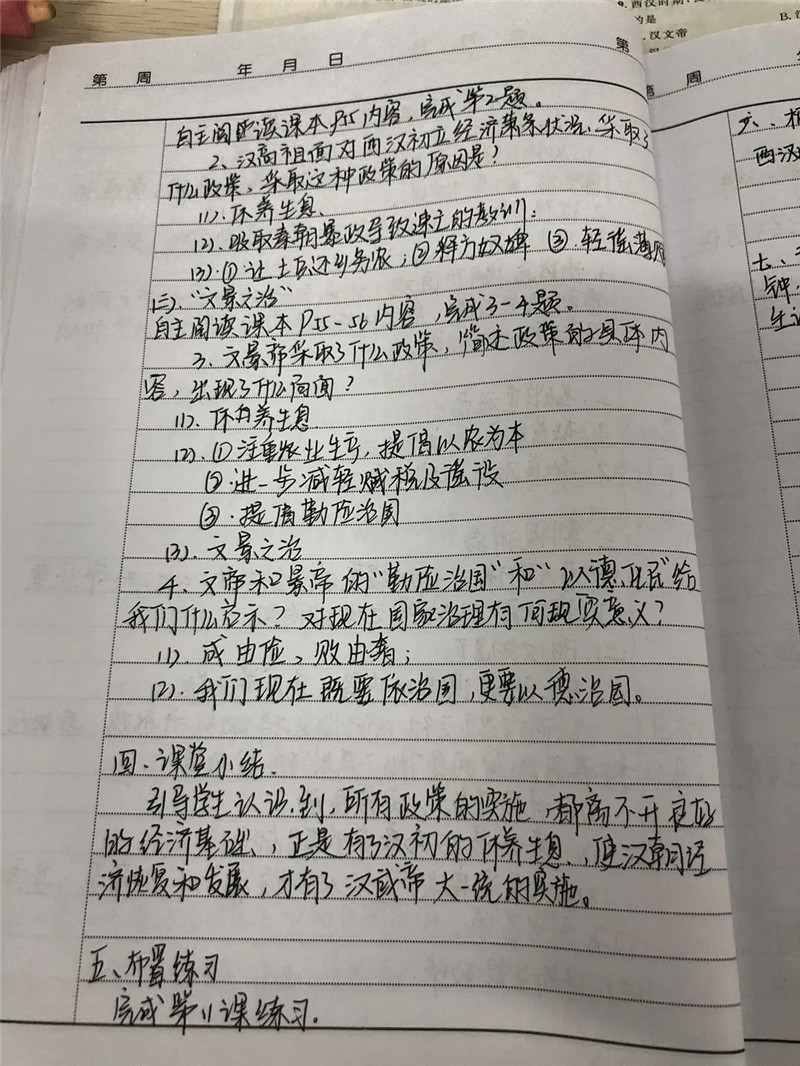 西汉时期,
的是
B. 汉
汉文帝
第 周 年 月 日 第
自主阅读课本P55内容,完成第2题。
2、汉高祖面对西汉初立经济萧条状况、采取了
什么政策,采取这种政策的原因是?
(1). 休养生息.
(2). 吸取秦朝暴政导致速亡的教训;
(3). ① 让士兵还乡务农;② 释放奴婢 ③. 轻徭薄赋
(三). “文景之治”
自主阅读课本P55-56内容,完成3-4题。
3、文景帝采取了什么政策,简述政策的具体内
容,出现了什么局面?
(1). 休养生息.
(2). ① 注重农业生产,提倡以农为本
② 进一步减轻赋税及徭役
③. 提倡勤俭治国
(3). 文景之治
4. 文帝和景帝的“勤俭治国”和“以德化民”给
我们什么启示?对现在国家治理有何现实意义?
(1). 成由俭、败由奢;
(2). 我们现在既要依治国,更要以德治国。
四. 课堂小结.
引导学生认识到,所有政策的实施,都离不开良好
的经济基础,正是有了汉初的休养生息,使汉朝经
济恢复和发展,才有了汉武帝大一统的实施。
五、布置练习
完成第11课练习.
第 周
六、板
西汉
七、
钟,
生